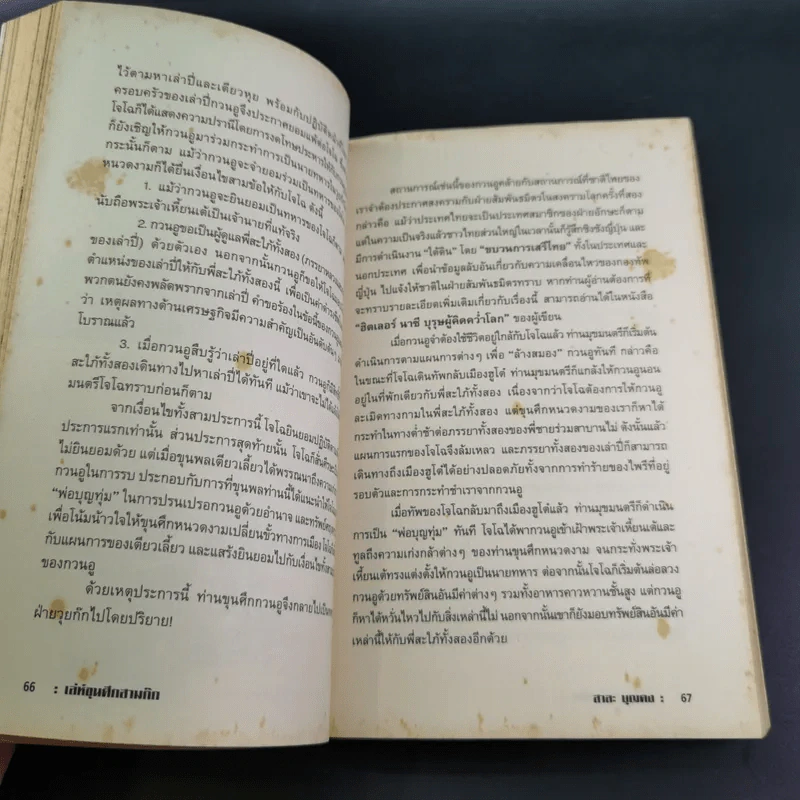 ไว้ตามหาเล่าปี่และเตียวหุย พร้อมกับปฏิบัติ
ครอบครัวของเล่าปี่กวนอูจึงประกาศยอมแพ้ต่อโจโฉ
โจโฉก็ได้แสดงความปรานีโดยการงดโทษประหารให้กับ
ก็ยังเชิญให้กวนอูมาร่วมกระทำการเป็นนายทหารใน
กระนั้นก็ตาม แม้ว่ากวนอูจะจำยอมร่วมเป็นทหารของ
หนวดงามก็ได้ยื่นเงื่อนไขสามข้อให้กับโจโฉ ดังนี้
1. แม้ว่ากวนอูจะยินยอมเป็นทหารของโจโฉ
นับถือพระเจ้าเหี้ยนเต้เป็นเจ้านายที่แท้จริง
2. กวนอูขอเป็นผู้ดูแลพี่สะใภ้ทั้งสอง (ภรรยา
ของเล่าปี่) ด้วยตัวเอง นอกจากนั้นกวนอูก็ขอให้โจโฉ
ตำแหน่งของเล่าปี่ให้กับพี่สะใภ้ทั้งสองนี้ เพื่อเป็นค่า
พวกตนยังคงพลัดพรากจากเล่าปี่ คำขอร้องในข้อนี้ของกวนอู
ว่า เหตุผลทางด้านเศรษฐกิจมีความสำคัญเป็นอันดับต้น
โบราณแล้ว
3. เมื่อกวนอูสืบรู้ว่าเล่าปี่อยู่ที่ใดแล้ว กวนอู
สะใภ้ทั้งสองเดินทางไปหาเล่าปี่ได้ทันที แม้ว่าเขาจะไม่ได้
มนตรีโจโฉทราบก่อนก็ตาม
จากเงื่อนไขทั้งสามประการนี้ โจโฉยินยอมปฏิบัติตาม
ประการแรกเท่านั้น ส่วนประการสุดท้ายนั้น โจโฉ
ไม่ยินยอมด้วย แต่เมื่อขุนพลเตียวเลี้ยวได้พรรณนาถึงความ
กวนอูในการรบ ประกอบกับการที่ขุนพลท่านนี้ได้แนะนำให้โจโฉ
“พ่อบุญทุ่ม” ในการปรนเปรอกวนอูด้วยอำนาจ และทรัพย์
เพื่อโน้มน้าวใจให้ขุนศึกหนวดงามเปลี่ยนขั้วทางการเมือง โจโฉ
กับแผนการของเตียวเลี้ยว และแสร้งยินยอมไปกับเงื่อนไขทั้ง
ของกวนอู
ด้วยเหตุประการนี้ ท่านขุนศึกกวนอูจึงกลายไปเป็น
ฝ่ายวุยก๊กไปโดยปริยาย!
66 : เล่ห์ขุนศึกสามก๊ก
สถานการณ์เช่นนี้ของกวนอูคล้ายกับสถานการณ์ที่ชาติไทยของ
เราจำต้องประกาศสงครามกับฝ่ายสัมพันธมิตรในสงครามโลกครั้งที่สอง
กล่าวคือ แม้ว่าประเทศไทยจะเป็นประเทศสมาชิกของฝ่ายอักษะก็ตาม
แต่ในความเป็นจริงแล้วชาวไทยส่วนใหญ่ในวันนั้นก็รู้สึกชิงชังญี่ปุ่น และ
มีการดำเนินงาน “ใต้ดิน” โดย “ขบวนการเสรีไทย” ทั้งในประเทศและ
นอกประเทศ เพื่อนำข้อมูลลับอันเกี่ยวกับความเคลื่อนไหวของกองทัพ
ญี่ปุ่น ไปแจ้งให้ชาติในฝ่ายสัมพันธมิตรทราบ หากท่านผู้อ่านต้องการที่
จะทราบรายละเอียดเพิ่มเติมเกี่ยวกับเรื่องนี้ สามารถอ่านได้ในหนังสือ
“ฮิตเลอร์ นาซี บุรุษผู้คิดคว่ำโลก” ของผู้เขียน
เมื่อกวนอูจำต้องใช้ชีวิตอยู่ใกล้กับโจโฉแล้ว ท่านมุขมนตรีก็เริ่มต้น
ดำเนินการตามแผนการต่างๆ เพื่อ “ล้างสมอง” กวนอูทันที กล่าวคือ
ในขณะที่โจโฉเดินทัพกลับเมืองฮูโต๋ ท่านมุขมนตรีก็แกล้งให้กวนอูนอน
อยู่ในที่พักเดียวกับพี่สะใภ้ทั้งสอง เนื่องจากว่าโจโฉต้องการให้กวนอู
ละเมิดทางกามในพี่สะใภ้ทั้งสอง แต่ขุนศึกหนวดงามของเราก็หาได้
กระทำในทางต่ำช้าต่อภรรยาทั้งสองของพี่ชายร่วมสาบานไม่ ดังนั้นแล้ว
แผนการแรกของโจโฉจึงล้มเหลว และภรรยาทั้งสองของเล่าปี่ก็สามารถ
เดินทางถึงเมืองฮูโต๋ได้อย่างปลอดภัยทั้งจากการทำร้ายของไพร่ที่อยู่
รอบตัวและการกระทำชำเราจากกวนอู
เมื่อทัพของโจโฉกลับมาถึงเมืองฮูโต๋แล้ว ท่านมุขมนตรีก็ดำเนิน
การเป็น “พ่อบุญทุ่ม” ทันที โจโฉได้พากวนอูเข้าเฝ้าพระเจ้าเหี้ยนเต้และ
ทูลถึงความเก่งกล้าต่างๆ ของท่านขุนศึกหนวดงาม จนกระทั่งพระเจ้า
เหี้ยนเต้ทรงแต่งตั้งให้กวนอูเป็นนายทหาร ต่อจากนั้นโจโฉก็เริ่มต้นล่อลวง
กวนอูด้วยทรัพย์สินอันมีค่าต่างๆ รวมทั้งอาหารคาวหวานชั้นสูง แต่กวนอู
ก็หาได้หวั่นไหวไปกับสิ่งเหล่านี้ไม่ นอกจากนั้นเขาก็ยังมอบทรัพย์สินอันมีค่า
เหล่านี้ให้กับพี่สะใภ้ทั้งสองอีกด้วย
สาละ บุญคง : 67